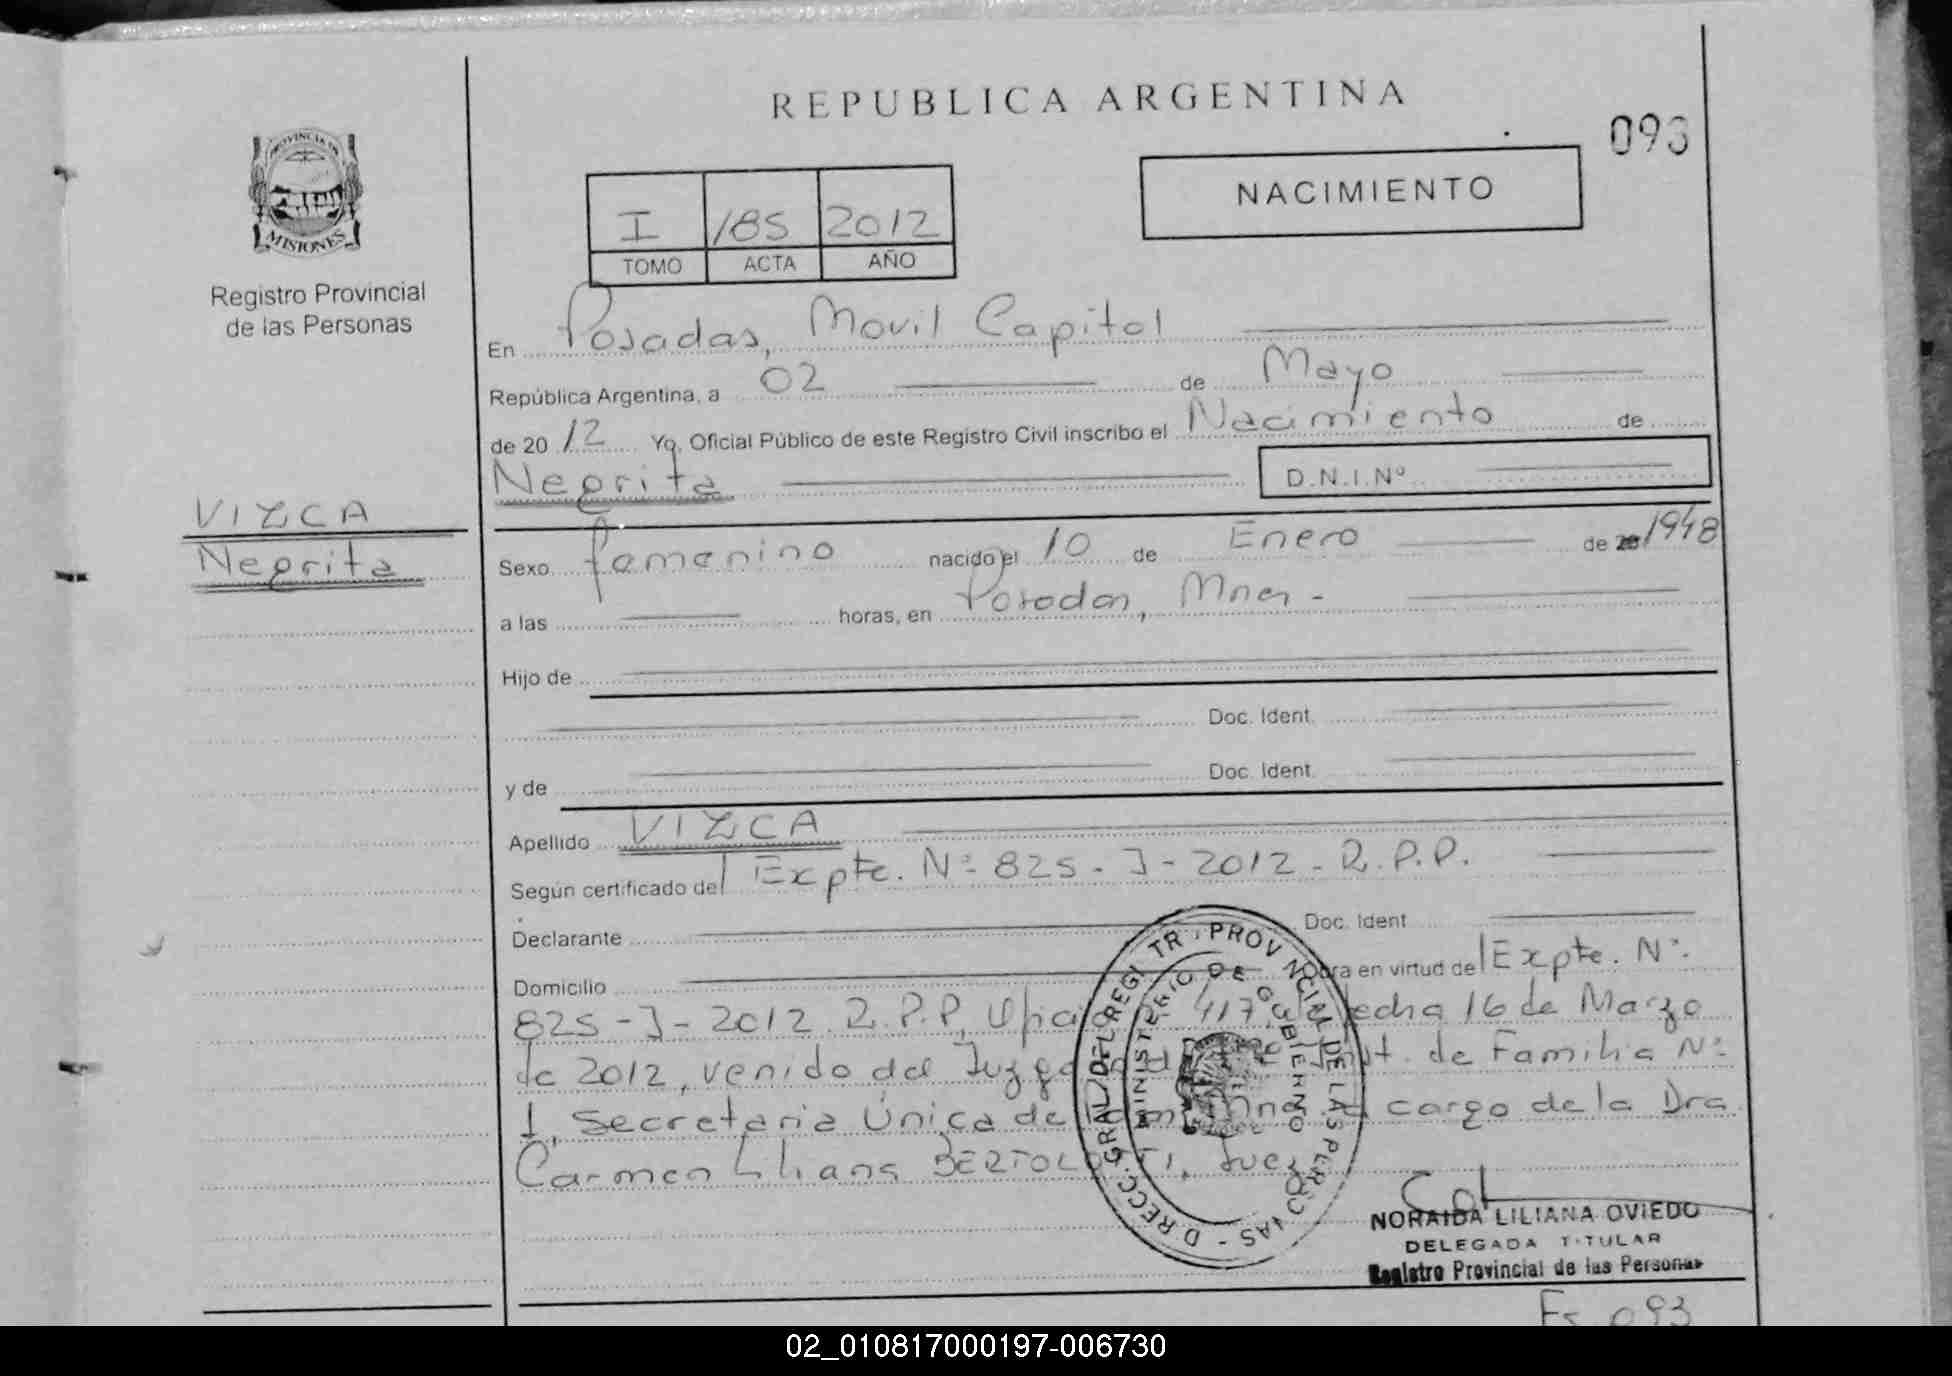 REPUBLICA ARGENTINA
093
NACIMIENTO
PROVINCIA DE
MISIONES
Registro Provincial
de las Personas
I 185 2012
TOMO ACTA AÑO
En Posadas, Movil Capital
República Argentina, a 02 de Mayo
de 2012 Yo, Oficial Público de este Registro Civil inscribo el Nacimiento de
Negrita D.N.I.Nº
VIZCA
Negrita
Sexo femenino nacido el 10 de Enero de 1948
a las horas, en Posadas, Mnes -
Hijo de
Doc. Ident.
y de Doc. Ident.
Apellido VIZCA
Según certificado del Expte. Nº 825 - J - 2012 - R.P.P.
Declarante Doc. Ident
Domicilio Obra en virtud del Expte. Nº
825 - J - 2012 R.P.P, Oficio 417 de fecha 16 de Marzo
de 2012, venido del Juzgado de Inst. de Familia Nº
1, Secretaria Única de a cargo de la Dra
Carmen Liliana BERTOLOTTI, Juez
DIRECC. GRAL. DEL REGISTR. PROVINCIAL DE LAS PERSONAS
MINISTERIO DE GOBIERNO
NORAIDA LILIANA OVIEDO
DELEGADA TITULAR
Registro Provincial de las Personas
Fs 093
02_010817000197-006730